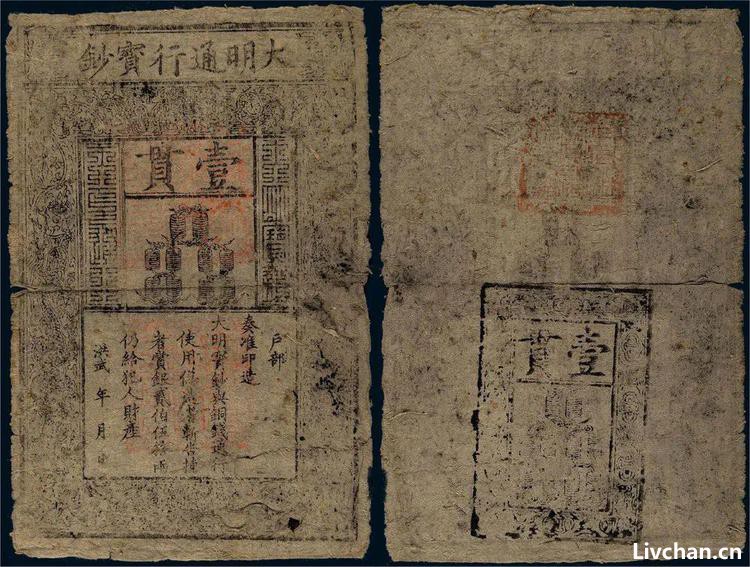 大明通行寶鈔
壹貫
戶部
奏准印造
大明寶鈔與銅錢通行
使用偽造者斬告捕
者賞銀貳伯伍拾兩
仍給犯人財產
洪武 年 月 日
壹貫
Livchan.cn